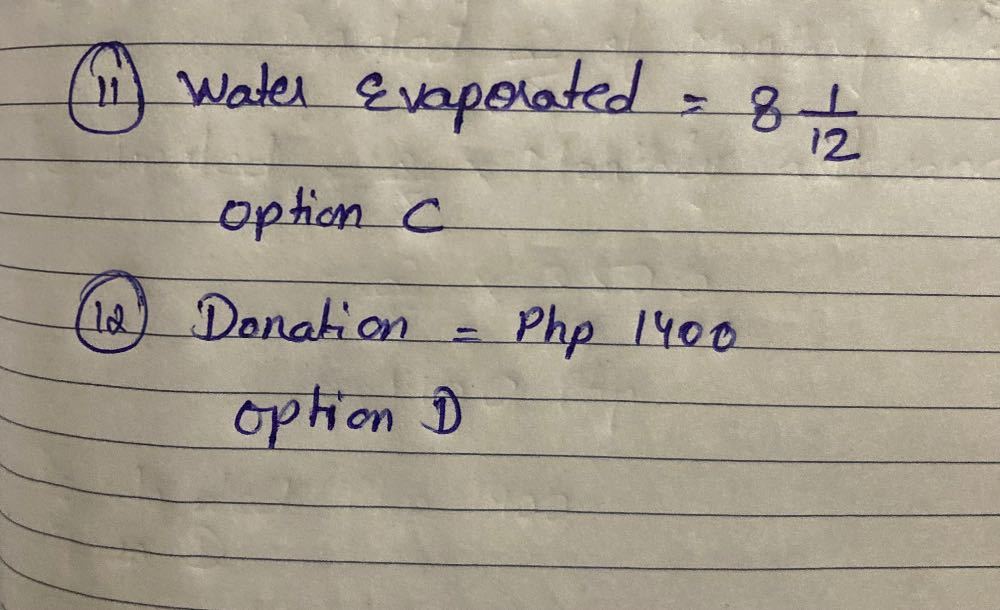 11 Water Evaporated = 8 1/12
option C
12 Donation = Php 1400
option D